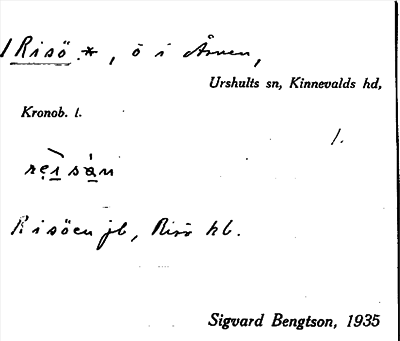 1 Risö *, ö i Åmen,
Urshults sn, Kinnevalds hd,
Kronob. l.
1.
reisàn
Risöen jb, Risö hb.
Sigvard Bengtson, 1935